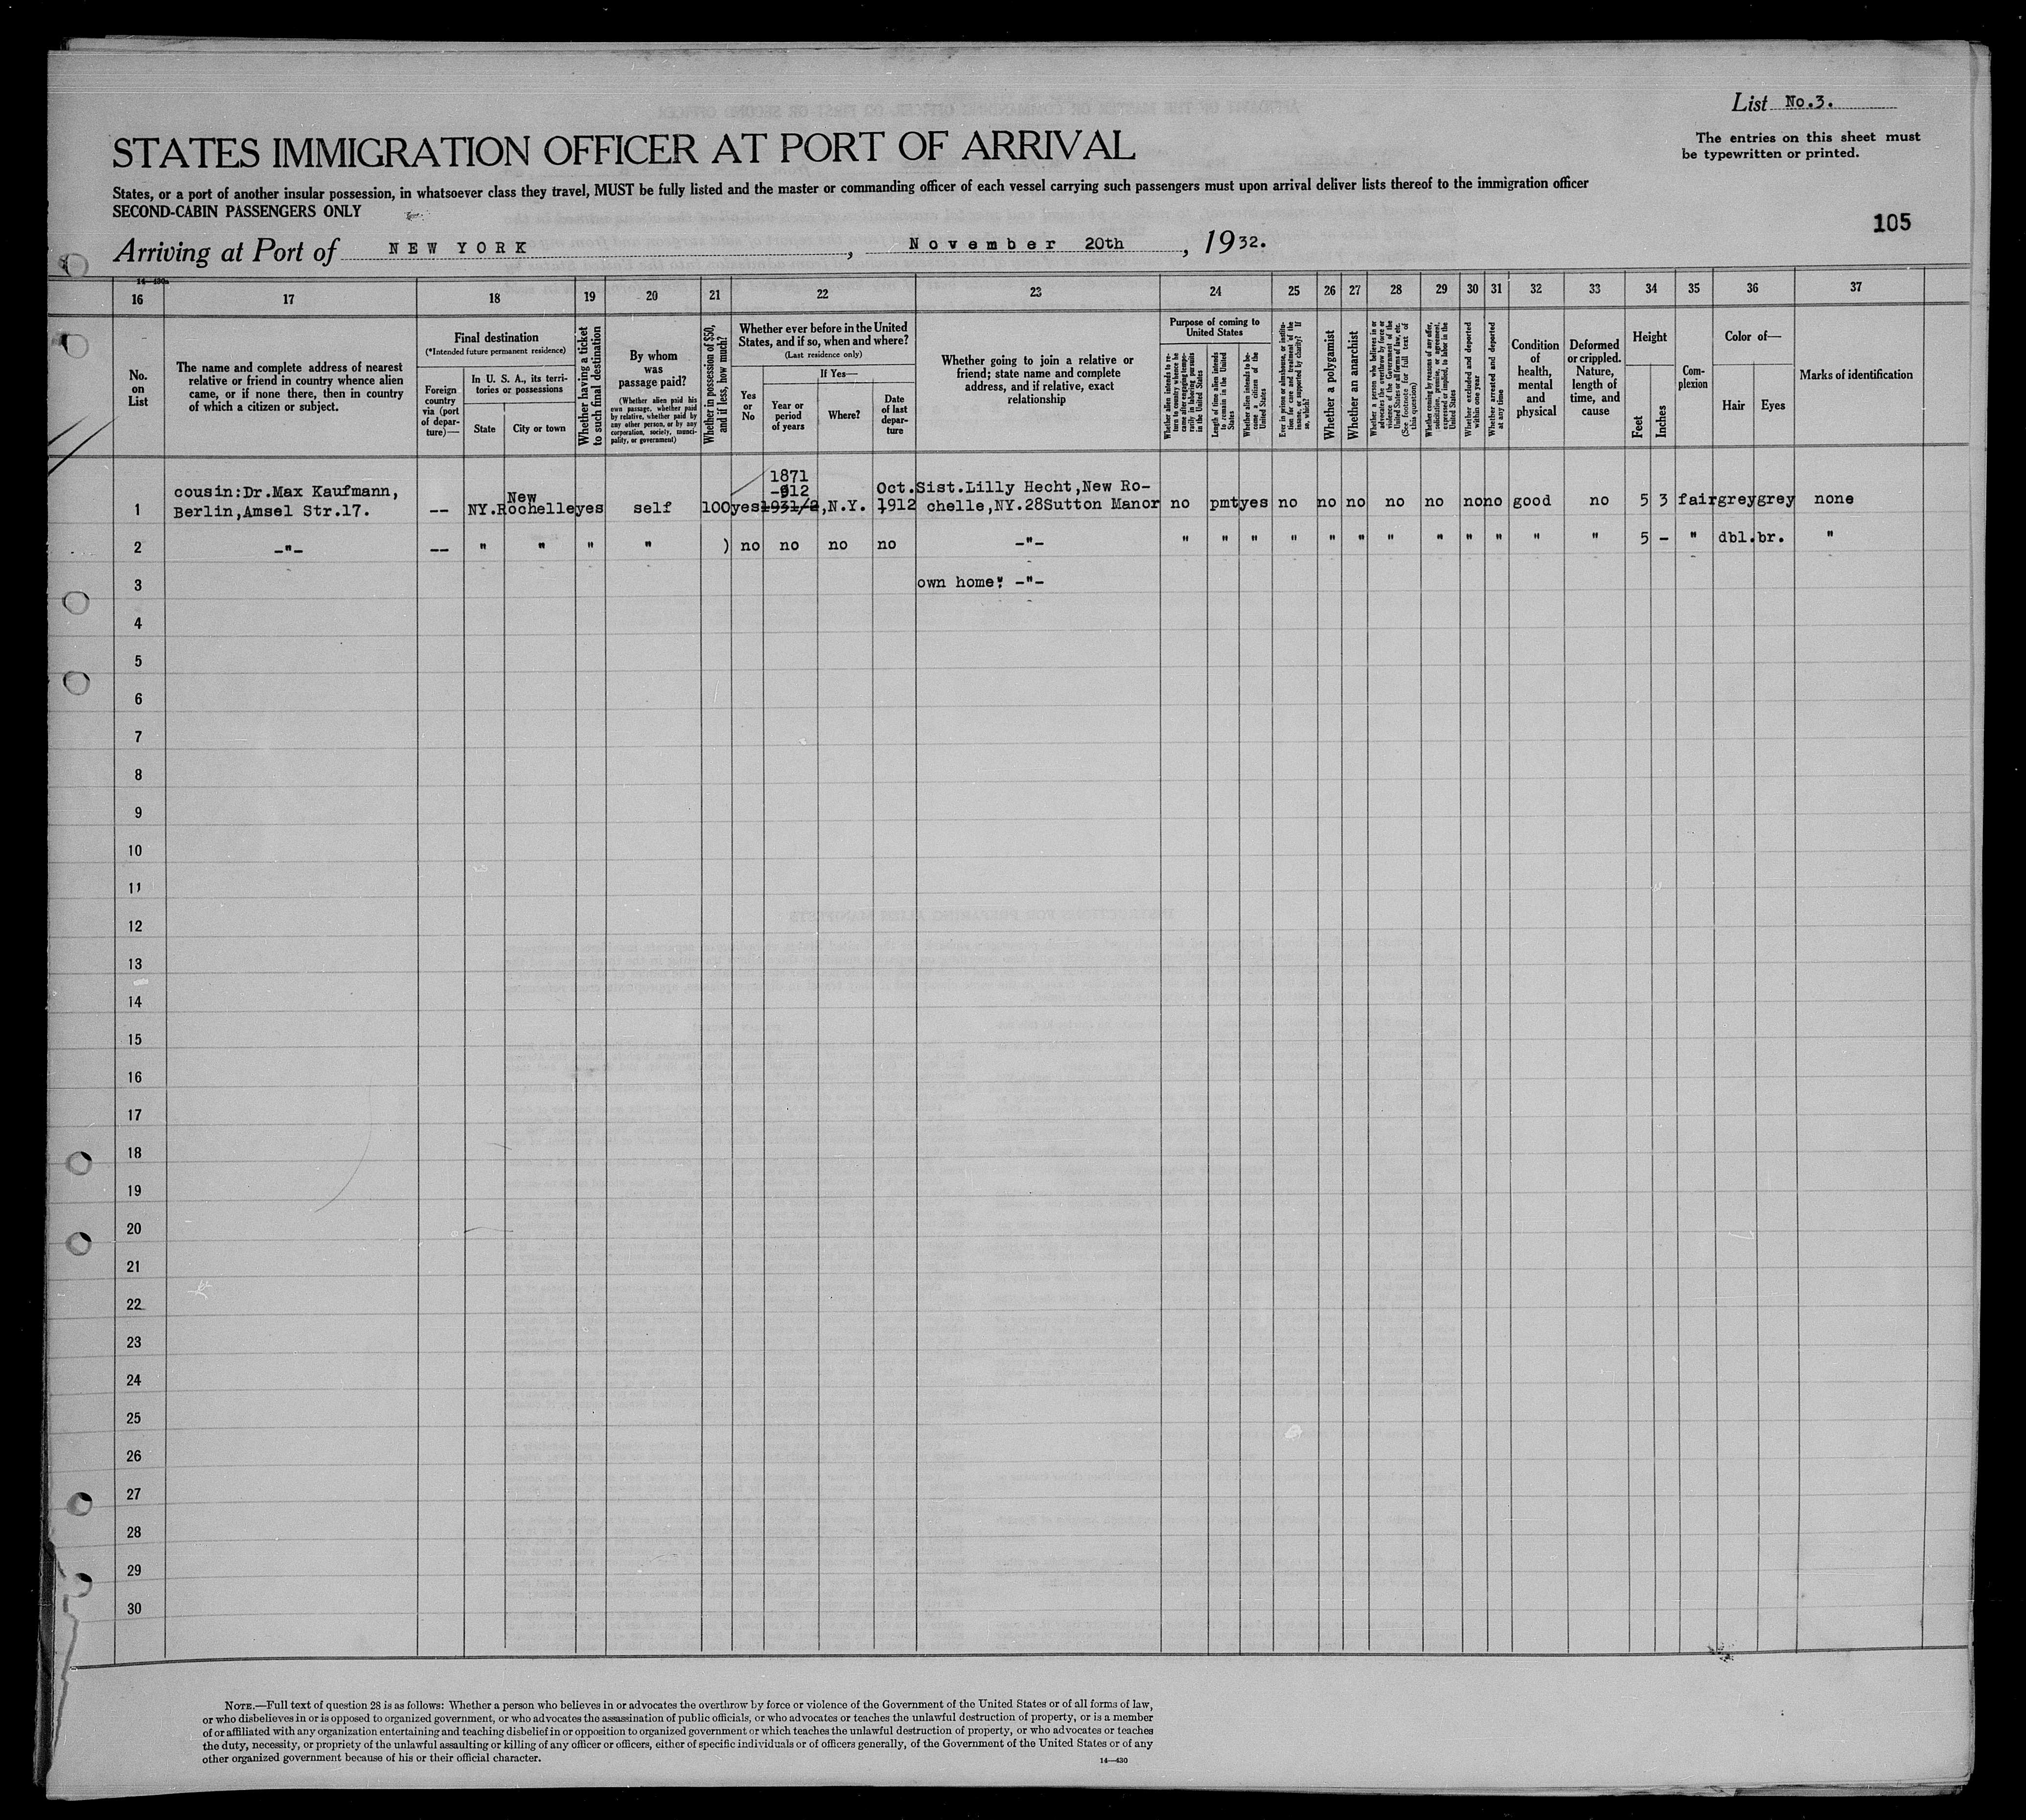 List No.3.
The entries on this sheet must
be typewritten or printed.
STATES IMMIGRATION OFFICER AT PORT OF ARRIVAL
States, or a port of another insular possession, in whatsoever class they travel, MUST be fully listed and the master or commanding officer of each vessel carrying such passengers must upon arrival deliver lists thereof to the immigration officer
SECOND-CABIN PASSENGERS ONLY
105
Arriving at Port of NEW YORK, November 20th, 1932.
14—430a
16 17 18 19 20 21 22 23 24 25 26 27 28 29 30 31 32 33 34 35 36 37
No. on List
The name and complete address of nearest
relative or friend in country whence alien
came, or if none there, then in country
of which a citizen or subject.
Final destination
(*Intended future permanent residence)
Foreign country via (port of departure)—
In U. S. A., its territories or possessions
State
City or town
Whether having a ticket to such final destination
By whom was passage paid?
(Whether alien paid his own passage, whether paid by relative, whether paid by any other person, or by any corporation, society, municipality, or government)
Whether in possession of $50, and if less, how much?
Whether ever before in the United States, and if so, when and where?
(Last residence only)
Yes or No
If Yes—
Year or period of years
Where?
Date of last departure
Whether going to join a relative or
friend; state name and complete
address, and if relative, exact
relationship
Purpose of coming to United States
Whether alien intends to return to country whence he came after engaging temporarily in laboring pursuits in the United States
Length of time alien intends to remain in the United States
Whether alien intends to become a citizen of the United States
Ever in prison or almshouse, or institution for care and treatment of the insane, or supported by charity? If so, which?
Whether a polygamist
Whether an anarchist
Whether a person who believes in or advocates the overthrow by force or violence of the Government of the United States or all forms of law, etc. (See footnote for full text of this question)
Whether coming by reason of any offer, solicitation, promise, or agreement, expressed or implied, to labor in the United States
Whether excluded and deported within one year
Whether arrested and deported at any time
Condition of health, mental and physical
Deformed or crippled. Nature, length of time, and cause
Height
Feet
Inches
Complexion
Color of—
Hair
Eyes
Marks of identification
1 cousin:Dr.Max Kaufmann, Berlin,Amsel Str.17. -- NY. New Rochelle yes self 100 yes 1871 -912 1931/2, N.Y. Oct. 1912 Sist.Lilly Hecht,New Rochelle,NY.28Sutton Manor no pmt yes no no no no no no no good no 5 3 fair grey grey none
2 -"- -- " " " " ) no no no no -"- " " " " " " " " " " " " 5 - " dbl. br. "
3 own home: -"-
4
5
6
7
8
9
10
11
12
13
14
15
16
17
18
19
20
21
22
23
24
25
26
27
28
29
30
NOTE.—Full text of question 28 is as follows: Whether a person who believes in or advocates the overthrow by force or violence of the Government of the United States or of all forms of law,
or who disbelieves in or is opposed to organized government, or who advocates the assassination of public officials, or who advocates or teaches the unlawful destruction of property, or is a member
of or affiliated with any organization entertaining and teaching disbelief in or opposition to organized government or which teaches the unlawful destruction of property, or who advocates or teaches
the duty, necessity, or propriety of the unlawful assaulting or killing of any officer or officers, either of specific individuals or of officers generally, of the Government of the United States or of any
other organized government because of his or their official character.
14—430